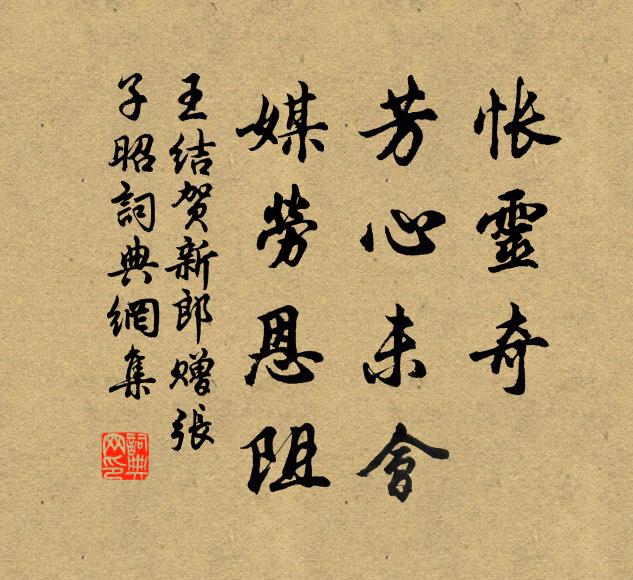 怅靈奇
芳心未會
媒勞恩阻
王结贺新郎赠張
子昭詞典網集
詞典
网印